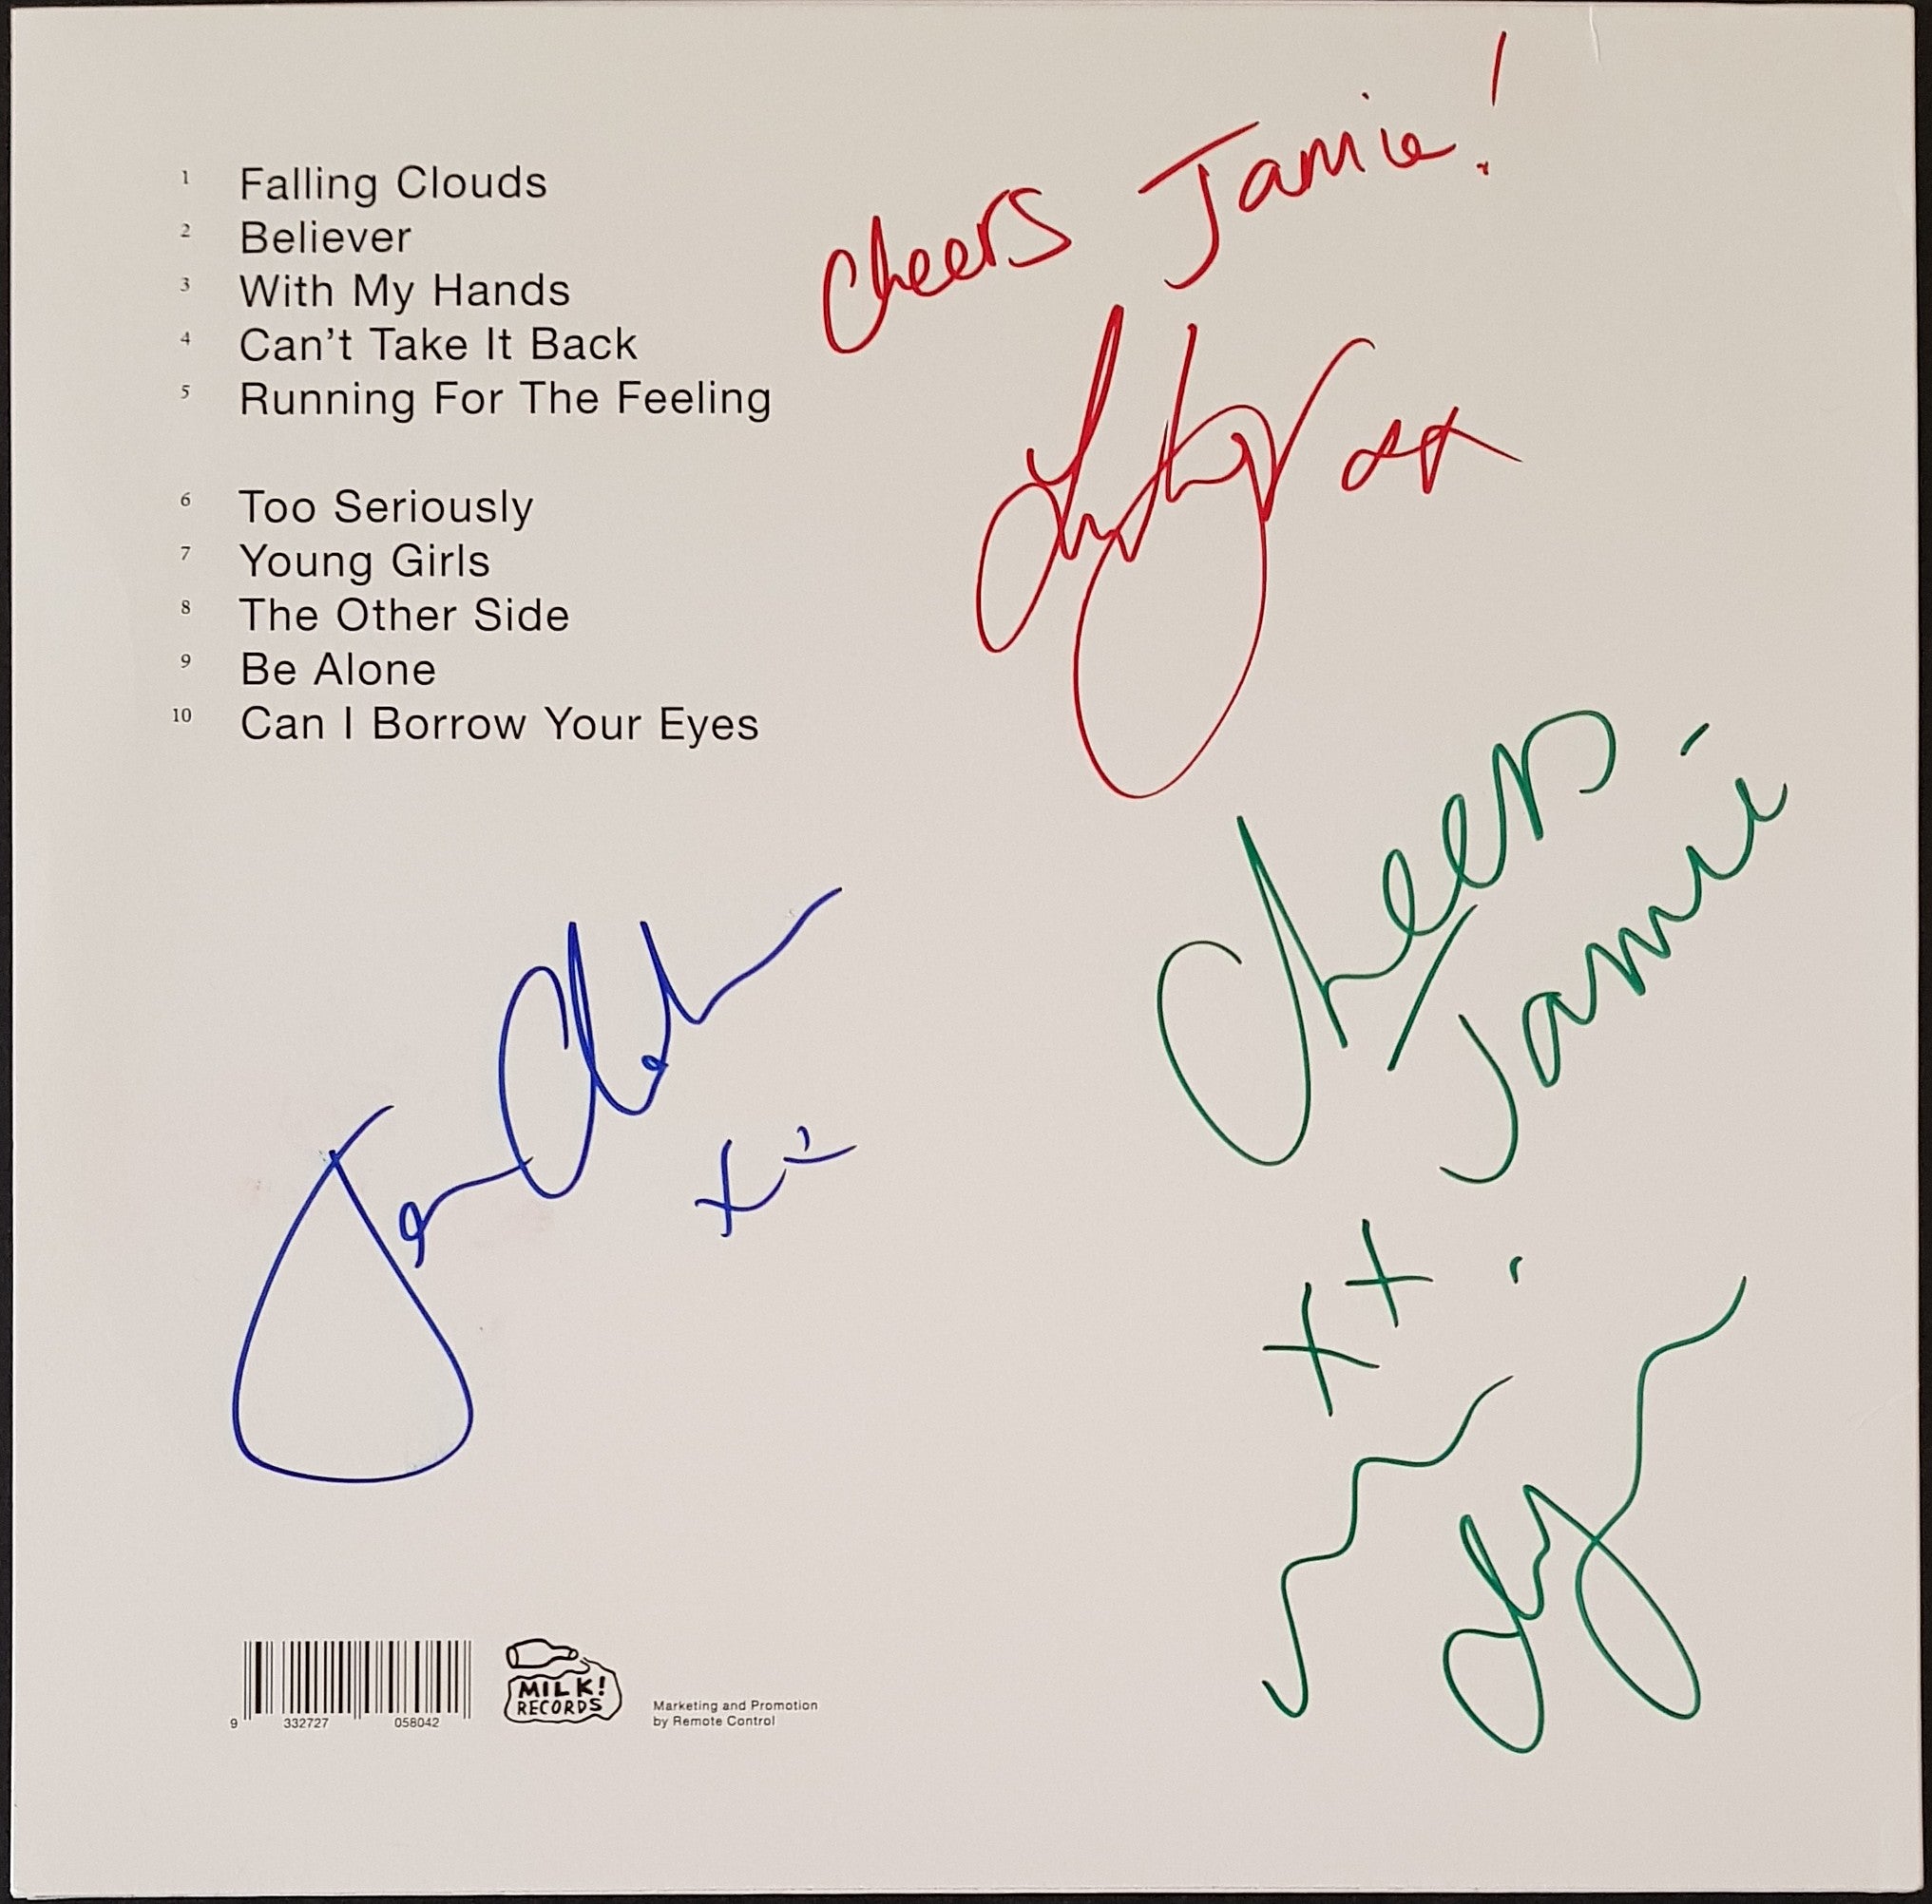 1 Falling Clouds
2 Believer
3 With My Hands
4 Can't Take It Back
5 Running For The Feeling
6 Too Seriously
7 Young Girls
8 The Other Side
9 Be Alone
10 Can I Borrow Your Eyes
Cheers Jamie!
xx
Cheers
Jamie
xx
9 332727 058042
MILK!
RECORDS
Marketing and Promotion
by Remote Control